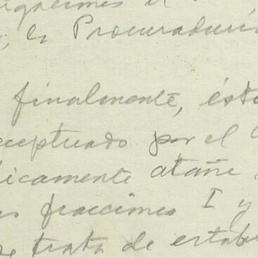 la Procuraduri
finalmente, ést
ceptuado por el
icamente atañe
fracciones I y
se trata de estab